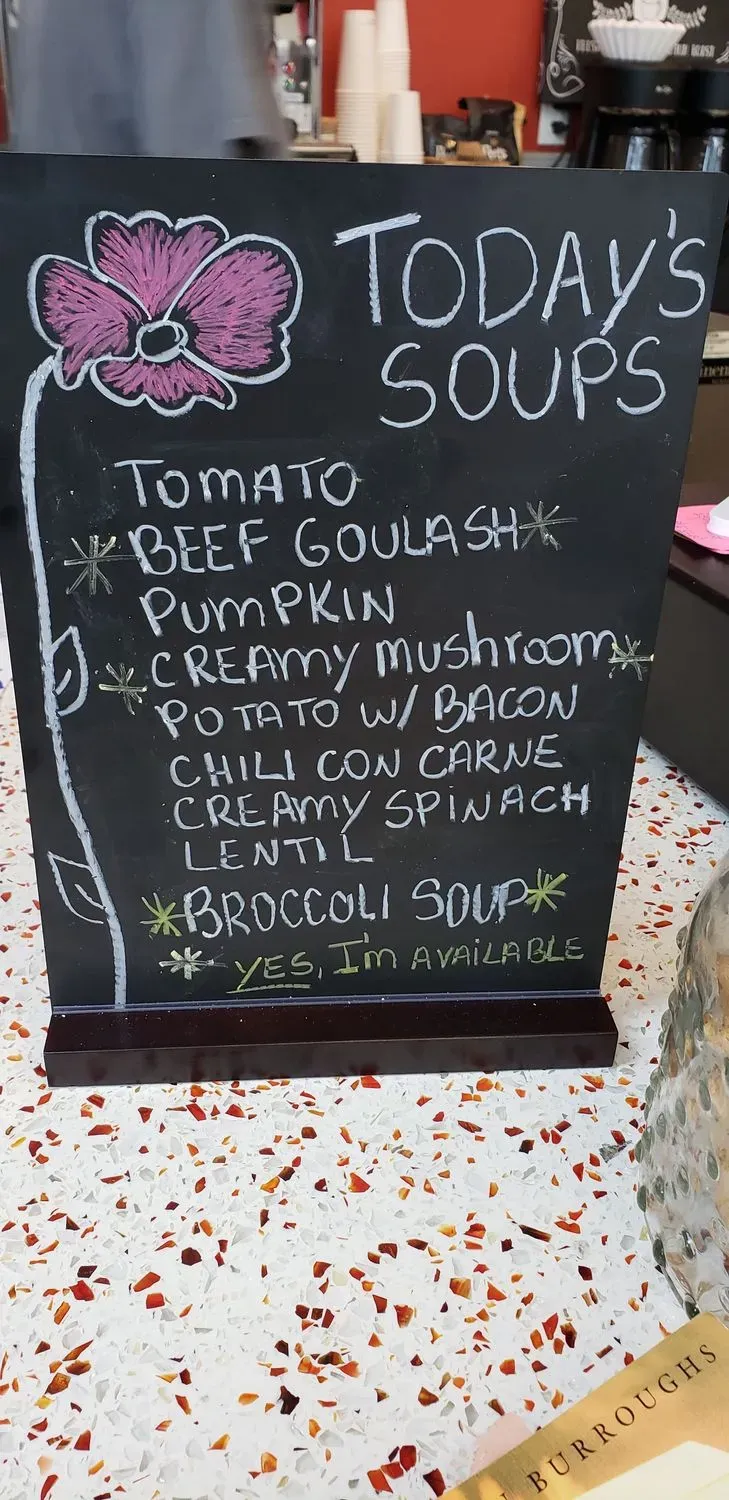 TODAY'S
SOUPS
TOMATO
*BEEF GOULASH*
PUMPKIN
*CREAMY MUSHROOM*
POTATO W/ BACON
CHILI CON CARNE
CREAMY SPINACH
LENTIL
*BROCCOLI SOUP*
* YES, I'M AVAILABLE
BURROUGHS